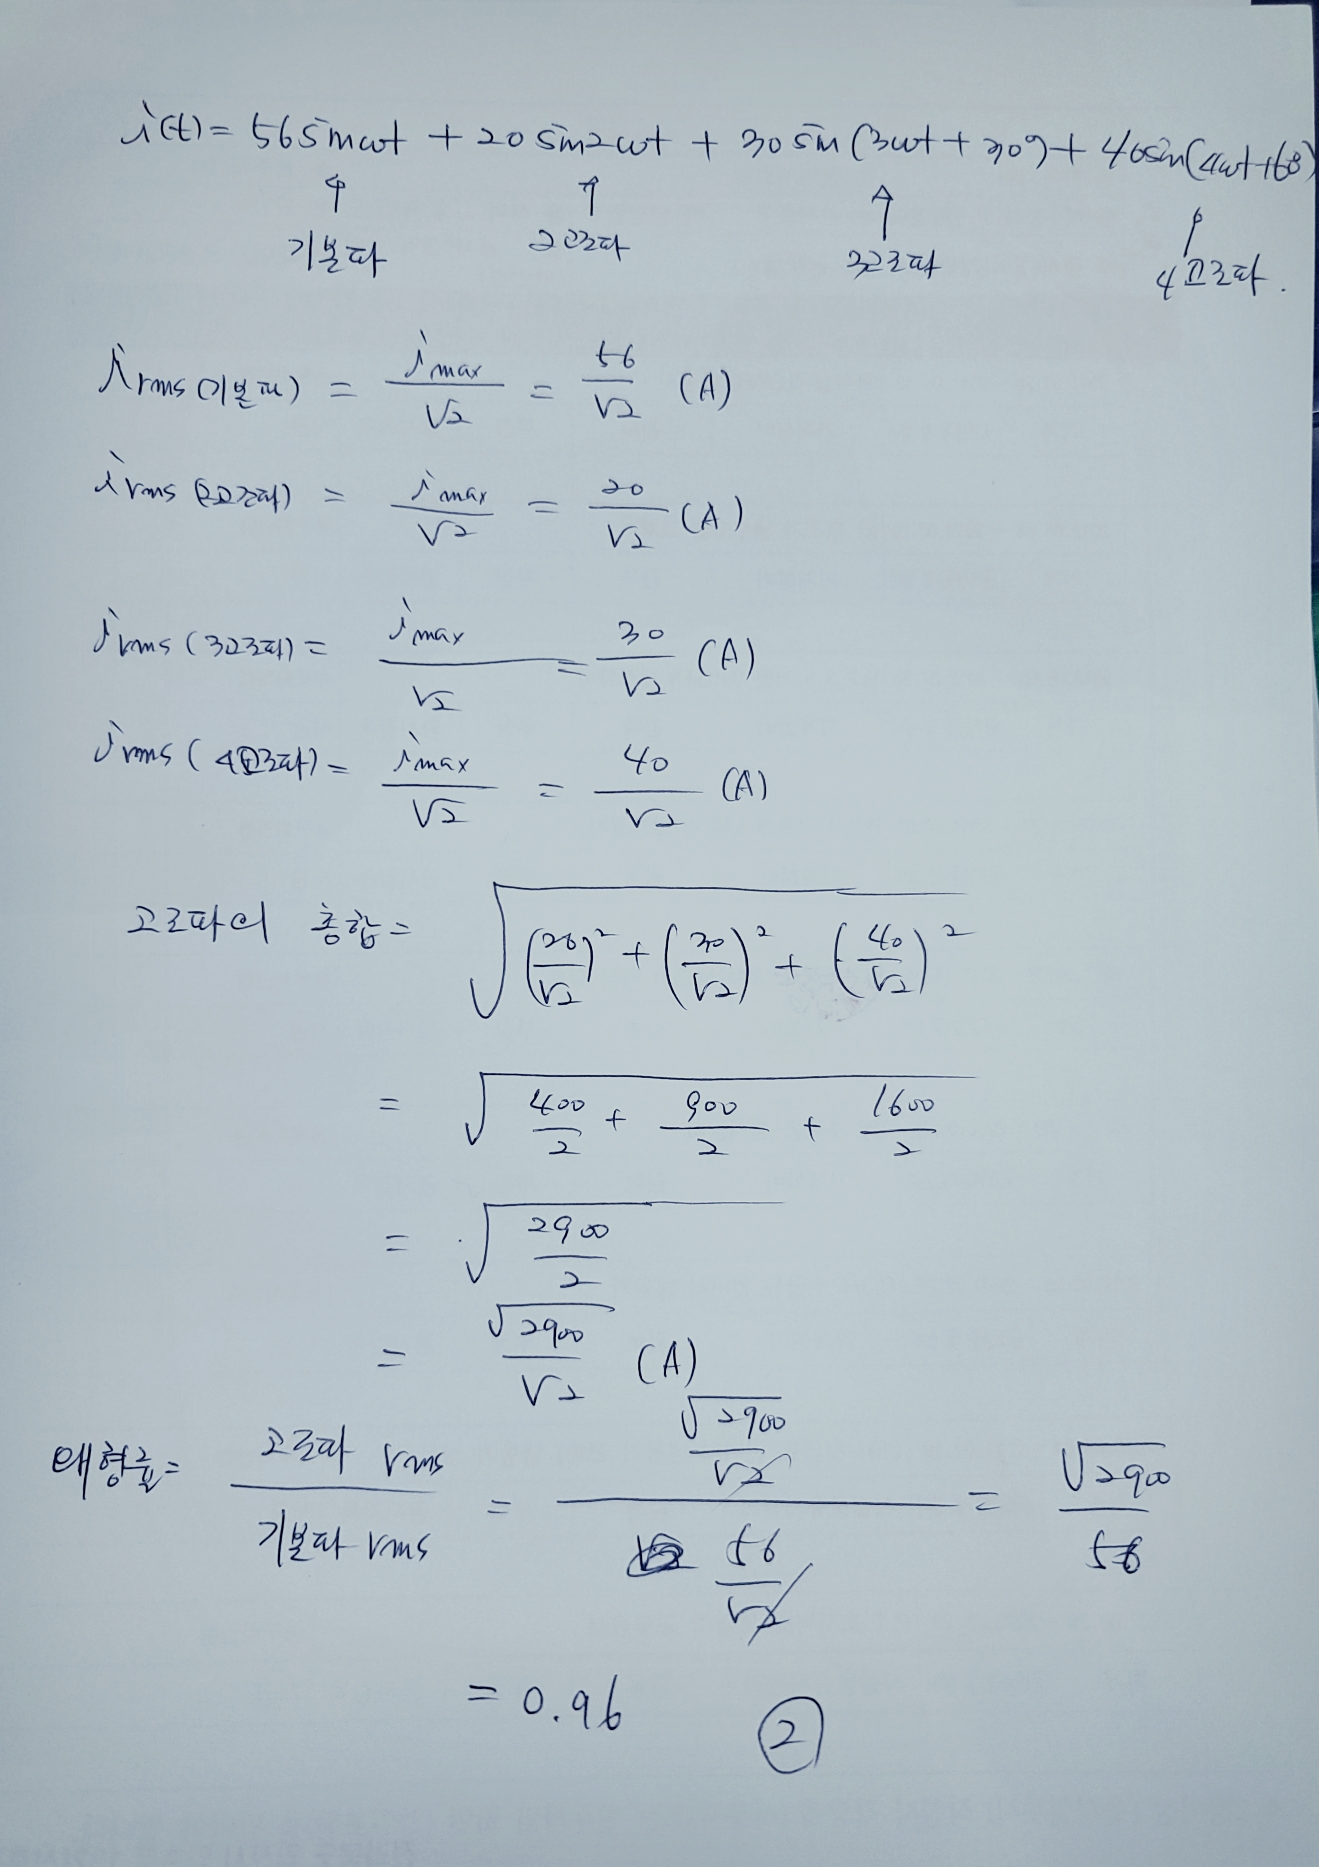 i(t) = 56 sin ωt + 20 sin 2ωt + 30 sin (3ωt + 30°) + 40 sin (4ωt + 60°)
기본파 2고조파 3고조파 4고조파.
i rms (기본파) = i max / √2 = 56 / √2 (A)
i rms (2고조파) = i max / √2 = 20 / √2 (A)
i rms (3고조파) = i max / √2 = 30 / √2 (A)
i rms (4고조파) = i max / √2 = 40 / √2 (A)
고조파의 총합 = √( (20/√2)² + (30/√2)² + (40/√2)² )
= √( 400/2 + 900/2 + 1600/2 )
= √( 2900/2 )
= √2900 / √2 (A)
왜형률 = 고조파 rms / 기본파 rms = (√2900 / √2) / (56 / √2) = √2900 / 56
= 0.96 ②